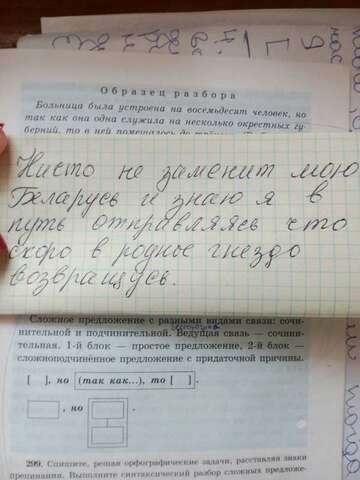 Образец разбора
Больница была устроена на восемьдесят человек, но
так как она одна служила на несколько окрестных гу-
берний, то в ней помещалось до
Нисто не заменит мою
Беларусь и знаю я в
путь отправляясь что
скоро в родные гнездо
возвращусь.
Сложное предложение с разными видами связи: сочи-
нительной и подчинительной. Ведущая связь — сочини-
тельная. 1-й блок — простое предложение, 2-й блок —
сложноподчинённое предложение с придаточной причины.
[ ], но (так как...), то [ ].
, но
299. Спишите, решая орфографические задачи, расставляя знаки
препинания. Выполните синтаксический разбор сложных предложе-